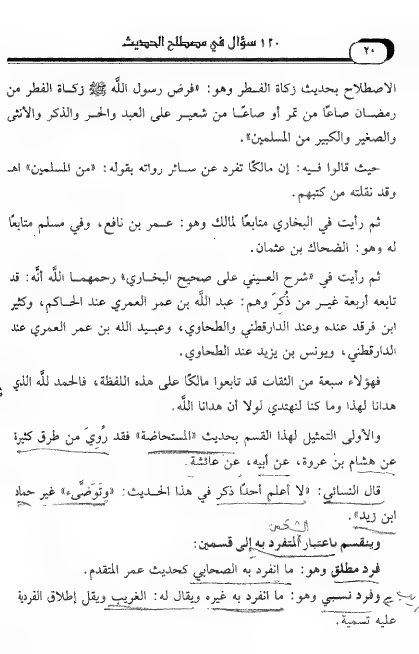 ١٢٠ سؤال في مصطلح الحديث
٢٠
الاصطلاح بحديث زكاة الفطر وهو: «فرض رسول اللَّه ﷺ زكاة الفطر من
رمضان صاعًا من تمر أو صاعًا من شعير على العبد والحر والذكر والأنثى
والصغير والكبير من المسلمين».
حيث قالوا فيه: إن مالكًا تفرد عن سائر رواته بقوله: «من المسلمين» اهـ
وقد نقلته من كتبهم.
ثم رأيت في البخاري متابعًا لمالك وهو: عمر بن نافع، وفي مسلم متابعًا
له وهو: الضحاك بن عثمان.
ثم رأيت في «شرح العيني على صحيح البخاري» رحمهما اللَّه أنَّه: قد
تابعه أربعة غير من ذُكِرَ وهم: عبد اللَّه بن عمر العمري عند الحاكم، وكثير
ابن فرقد عنده وعند الدارقطني والطحاوي، وعبيد الله بن عمر العمري عند
الدارقطني، ويونس بن يزيد عند الطحاوي.
فهؤلاء سبعة من الثقات قد تابعوا مالكًا على هذه اللفظة، فالحمد للَّه الذي
هدانا لهذا وما كنا لنهتدي لولا أن هدانا اللَّه.
والأولى التمثيل لهذا القسم بحديث «المستحاضة» فقد رُوِيَ من طرق كثيرة
عن هشام بن عروة، عن أبيه، عن عائشة.
قال النسائي: «لا أعلم أحدًا ذكر في هذا الحديث: «وتَوَضَّىء» غير حماد
ابن زيد».
الشخص
وينقسم باعتبار المتفرد به إلى قسمين:
فرد مطلق وهو: ما انفرد به الصحابي كحديث عمر المتقدم.
وفرد نسبي وهو: ما انفرد به غيره ويقال له: الغريب ويقل إطلاق الفردية
عليه تسمية.